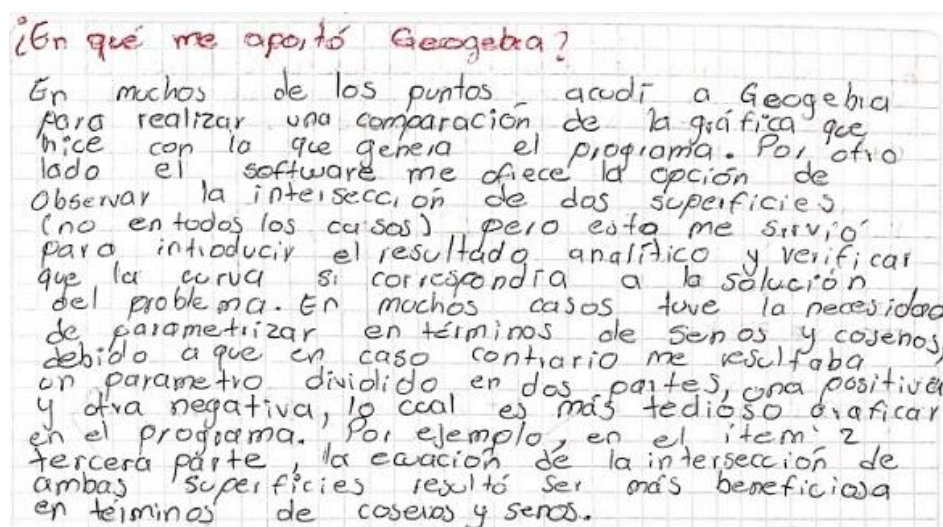 ¿En qué me aportó Geogebra?
En muchos de los puntos acudí a Geogebra
para realizar una comparación de la gráfica que
hice con la que genera el programa. Por otro
lado el software me ofrece la opción de
observar la intersección de dos superficies
(no en todos los casos) pero esto me sirvió
para introducir el resultado analítico y verificar
que la curva si correspondía a la solución
del problema. En muchos casos tuve la necesidad
de parametrizar en términos de senos y cosenos,
debido a que en caso contrario me resultaba
un parametro dividido en dos partes, una positiva
y otra negativa, lo cual es más tedioso graficar
en el programa. Por ejemplo, en el item 2
tercera parte, la ecuación de la intersección de
ambas superficies resultó ser más beneficiosa
en términos de cosenos y senos.